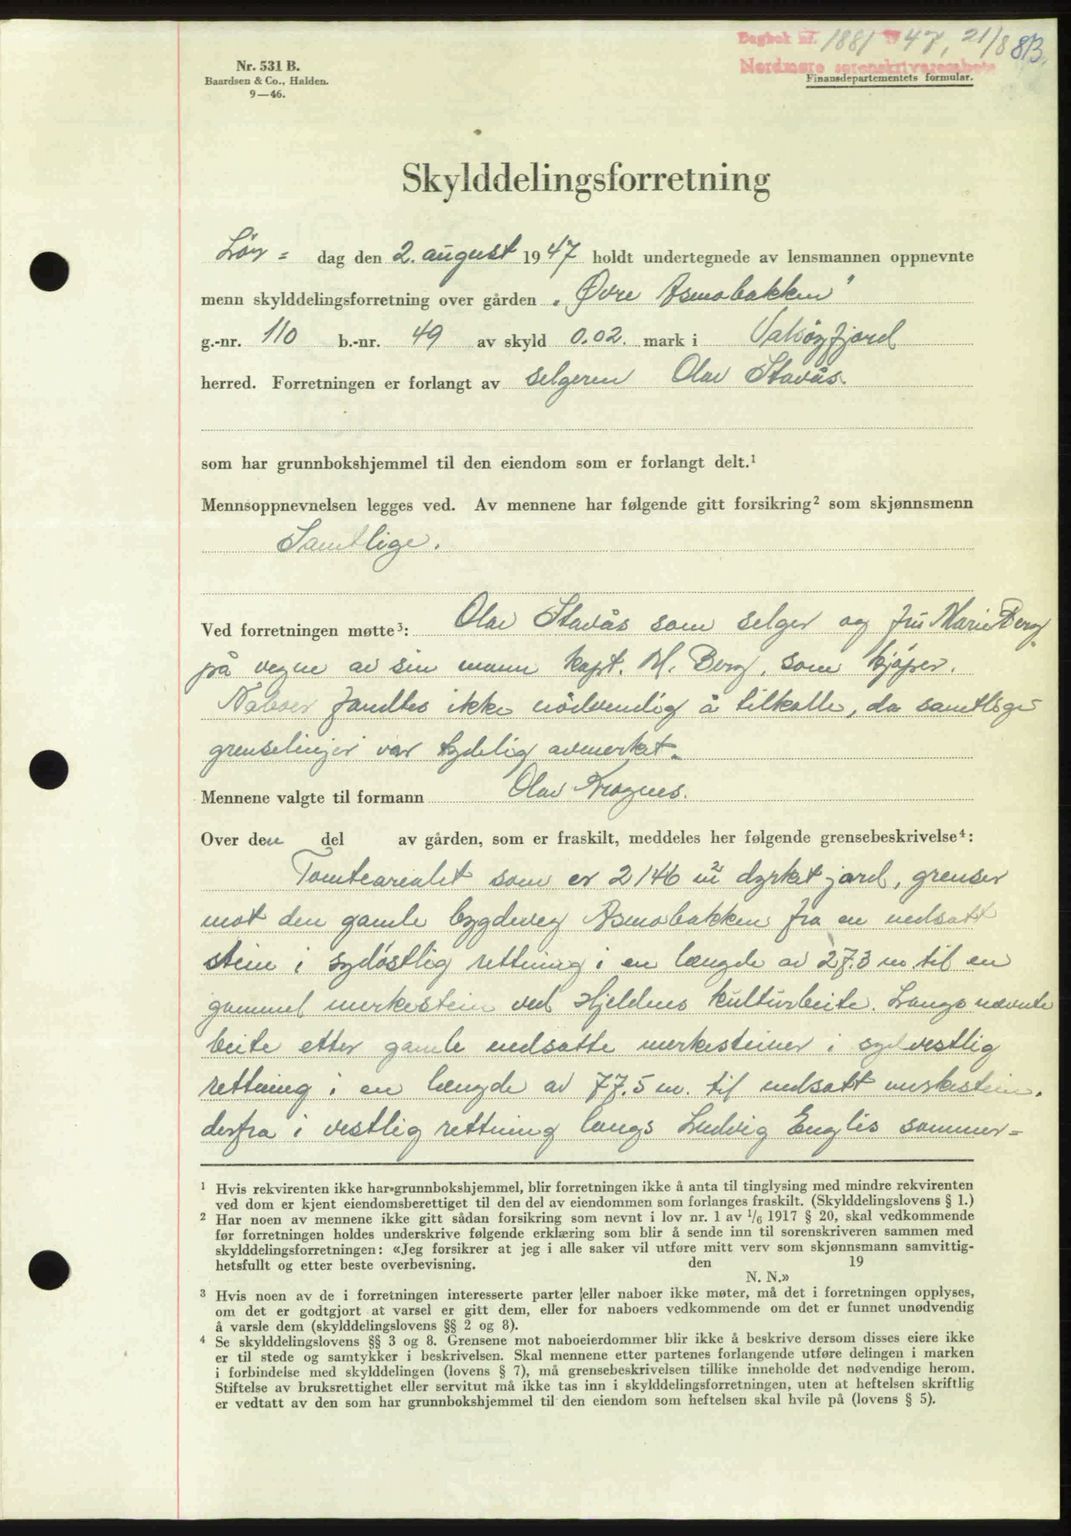 Dagbok nr. 1881 1947, 21/8 8B.
Nordmøre sorenskriverembete
Nr. 531 B.
Baardsen & Co., Halden.
9—46.
Finansdepartementets formular.
Skylddelingsforretning
Lør= dag den 2. august 1947 holdt undertegnede av lensmannen oppnevnte
menn skylddelingsforretning over gården „Øvre Asmobakken”
g.-nr. 110 b.-nr. 49 av skyld 0.02. mark i Valsøyfjord
herred. Forretningen er forlangt av selgeren Olav Stavås.
som har grunnbokshjemmel til den eiendom som er forlangt delt.¹
Mennsoppnevnelsen legges ved. Av mennene har følgende gitt forsikring² som skjønnsmenn
Samtlige.
Ved forretningen møtte³: Olav Stavås som selger og fru Marie Berg
på vegne av sin mann kapt. M. Berg, som kjøper.
Naboer fandtes ikke nödvendig å tilkalle, da samtlige
grenselinjer var tydelig avmerket.
Mennene valgte til formann Olav Krognes.
Over den del av gården, som er fraskilt, meddeles her følgende grensebeskrivelse⁴:
Tomtearealet som er 2146 m² dyrket jord, grenser
mot den gamle bygdevey Asmobakken fra en nedsatt
stein i sydöstlig rettning i en længde av 27.3 m. til en
gammel merkestein ved Hjeldnes kulturbeite. Langs nævnte
beite etter gamle nedsatte merkesteiner i sydvestlig
rettning i en længde av 77.5 m. til nedsatt merkestein.
derfra i vestlig rettning langs Ludvig Englis sommer=
¹ Hvis rekvirenten ikke har grunnbokshjemmel, blir forretningen ikke å anta til tinglysing med mindre rekvirenten
ved dom er kjent eiendomsberettiget til den del av eiendommen som forlanges fraskilt. (Skylddelingslovens § 1.)
² Har noen av mennene ikke gitt sådan forsikring som nevnt i lov nr. 1 av 1/6 1917 § 20, skal vedkommende
før forretningen holdes underskrive følgende erklæring som blir å sende inn til sorenskriveren sammen med
skylddelingsforretningen: «Jeg forsikrer at jeg i alle saker vil utføre mitt verv som skjønnsmann samvittig-
hetsfullt og etter beste overbevisning. den 19
N. N.»
³ Hvis noen av de i forretningen interesserte parter eller naboer ikke møter, må det i forretningen opplyses,
om det er godtgjort at varsel er gitt dem, eller for naboers vedkommende om det er funnet unødvendig
å varsle dem (skylddelingslovens §§ 2 og 8).
⁴ Se skylddelingslovens §§ 3 og 8. Grensene mot naboeierdommer blir ikke å beskrive dersom disses eiere ikke
er til stede og samtykker i beskrivelsen. Skal mennene etter partenes forlangende utføre delingen i marken
i forbindelse med skylddelingen (lovens § 7), må grensebeskrivelsen tillike inneholde det nødvendige herom.
Stiftelse av bruksrettighet eller servitut må ikke tas inn i skylddelingsforretningen, uten at heftelsen skriftlig
er vedtatt av den som har grunnbokshjemmel til den eiendom som heftelsen skal hvile på (lovens § 5).